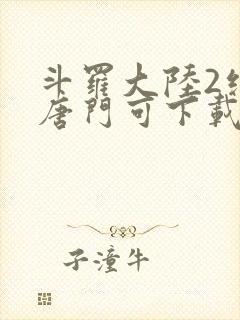 斗羅大陸2
唐門可下載
子潼牛